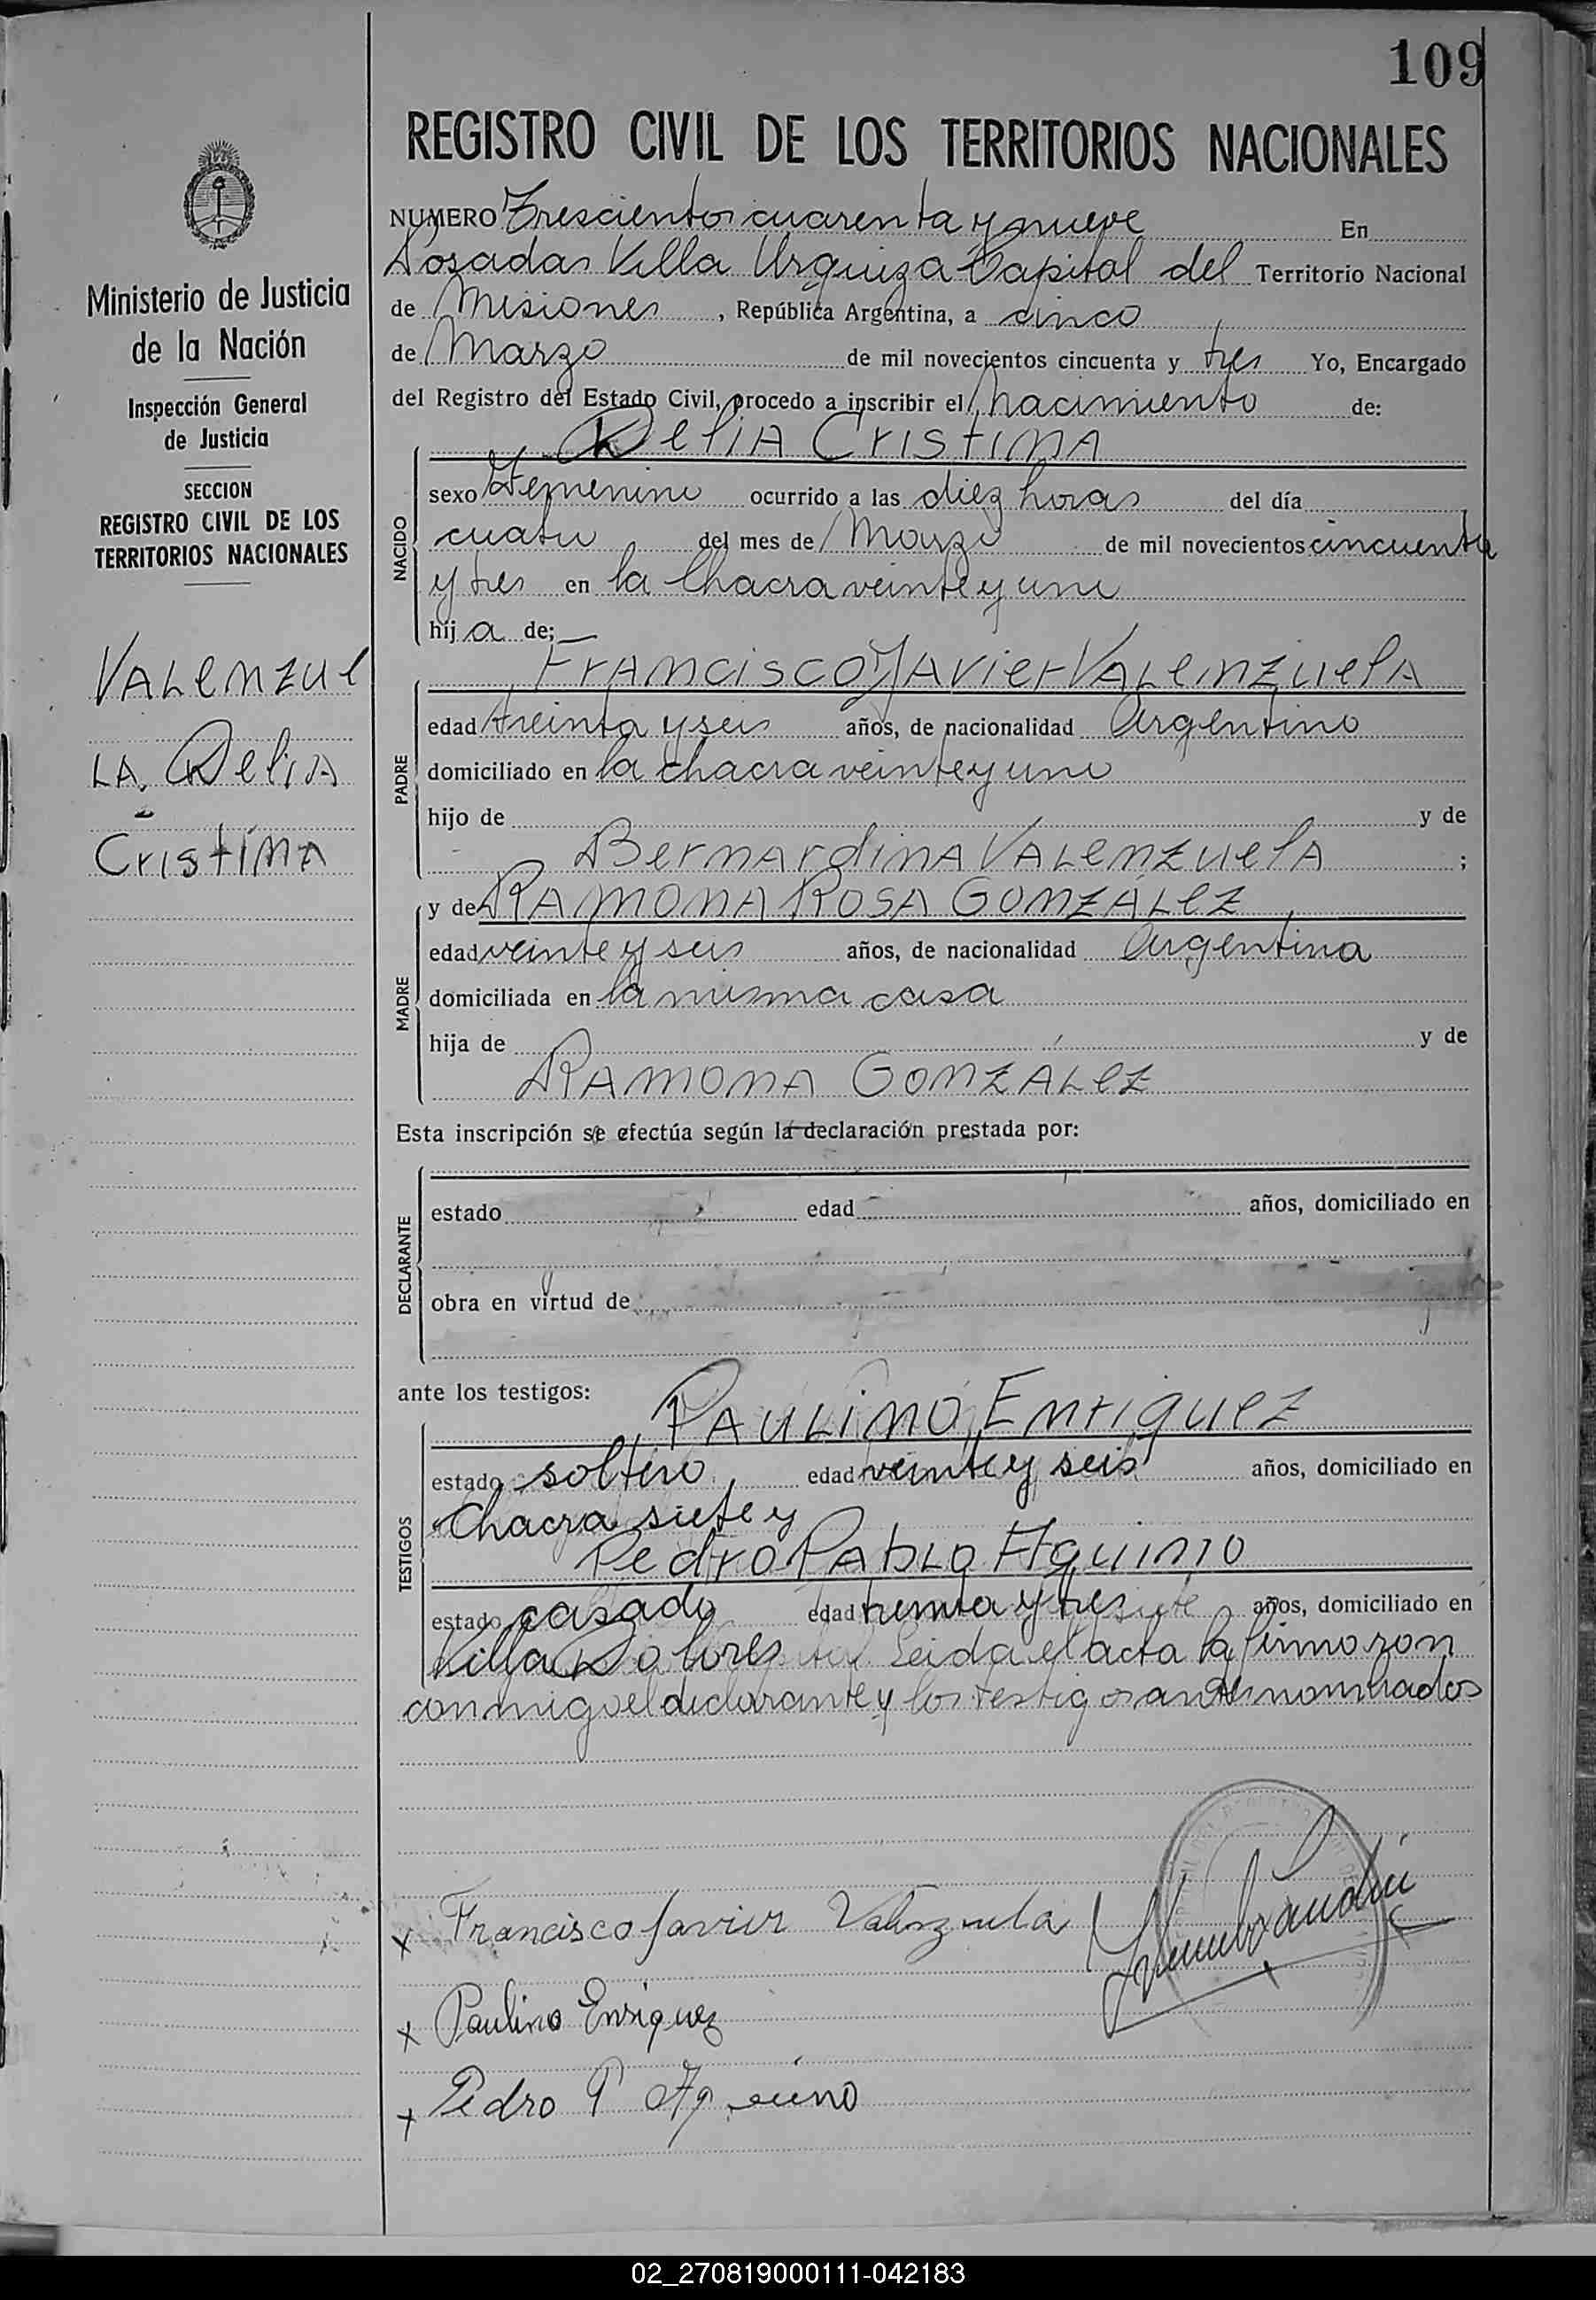 109
REGISTRO CIVIL DE LOS TERRITORIOS NACIONALES
Ministerio de Justicia
de la Nación
Inspección General
de Justicia
SECCION
REGISTRO CIVIL DE LOS
TERRITORIOS NACIONALES
VALENZUE
LA, DELIA
CRISTINA
NUMERO Trescientos cuarenta y nueve En
Posadas Villa Urquiza Capital del Territorio Nacional
de Misiones, República Argentina, a cinco
de Marzo de mil novecientos cincuenta y tres Yo, Encargado
del Registro del Estado Civil, procedo a inscribir el nacimiento de:
DELIA CRISTINA
NACIDO
sexo Femenino ocurrido a las diez horas del día
cuatro del mes de Marzo de mil novecientos cincuenta
y tres en la Chacra veinte y uno
hija de;
PADRE
FRANCISCO JAVIER VALENZUELA
edad treinta y seis años, de nacionalidad Argentino
domiciliado en la chacra veinte y uno
hijo de y de
BERNARDINA VALENZUELA ;
MADRE
y de RAMONA ROSA GONZÁLEZ
edad veinte y seis años, de nacionalidad Argentina
domiciliada en la misma casa
hija de y de
RAMONA GONZALEZ
Esta inscripción se efectúa según la declaración prestada por:
DECLARANTE
estado edad años, domiciliado en
obra en virtud de
ante los testigos:
TESTIGOS
PAULINO ENRIQUEZ
estado soltero edad veinte y seis años, domiciliado en
Chacra siete y
PEDRO PABLO AQUINO
estado casado edad treinta y tres años, domiciliado en
Villa Dolores Leida el acta la firmaron
conmigo el declarante y los testigos antes nombrados
x Francisco Javier Valenzuela
x Paulino Enriquez
x Pedro P Aquino
02_270819000111-042183